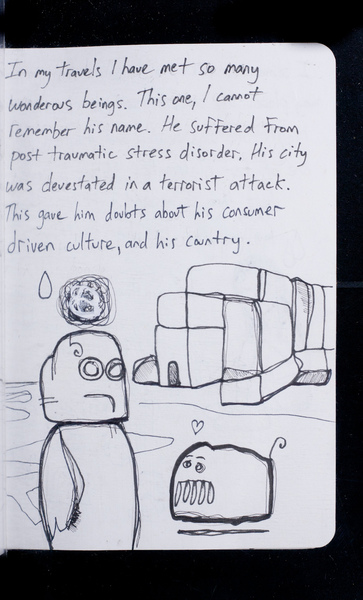 In my travels I have met so many
wonderous beings. This one, I cannot
remember his name. He suffered from
post traumatic stress disorder. His city
was devestated in a terrorist attack.
This gave him doubts about his consumer
driven culture, and his country.